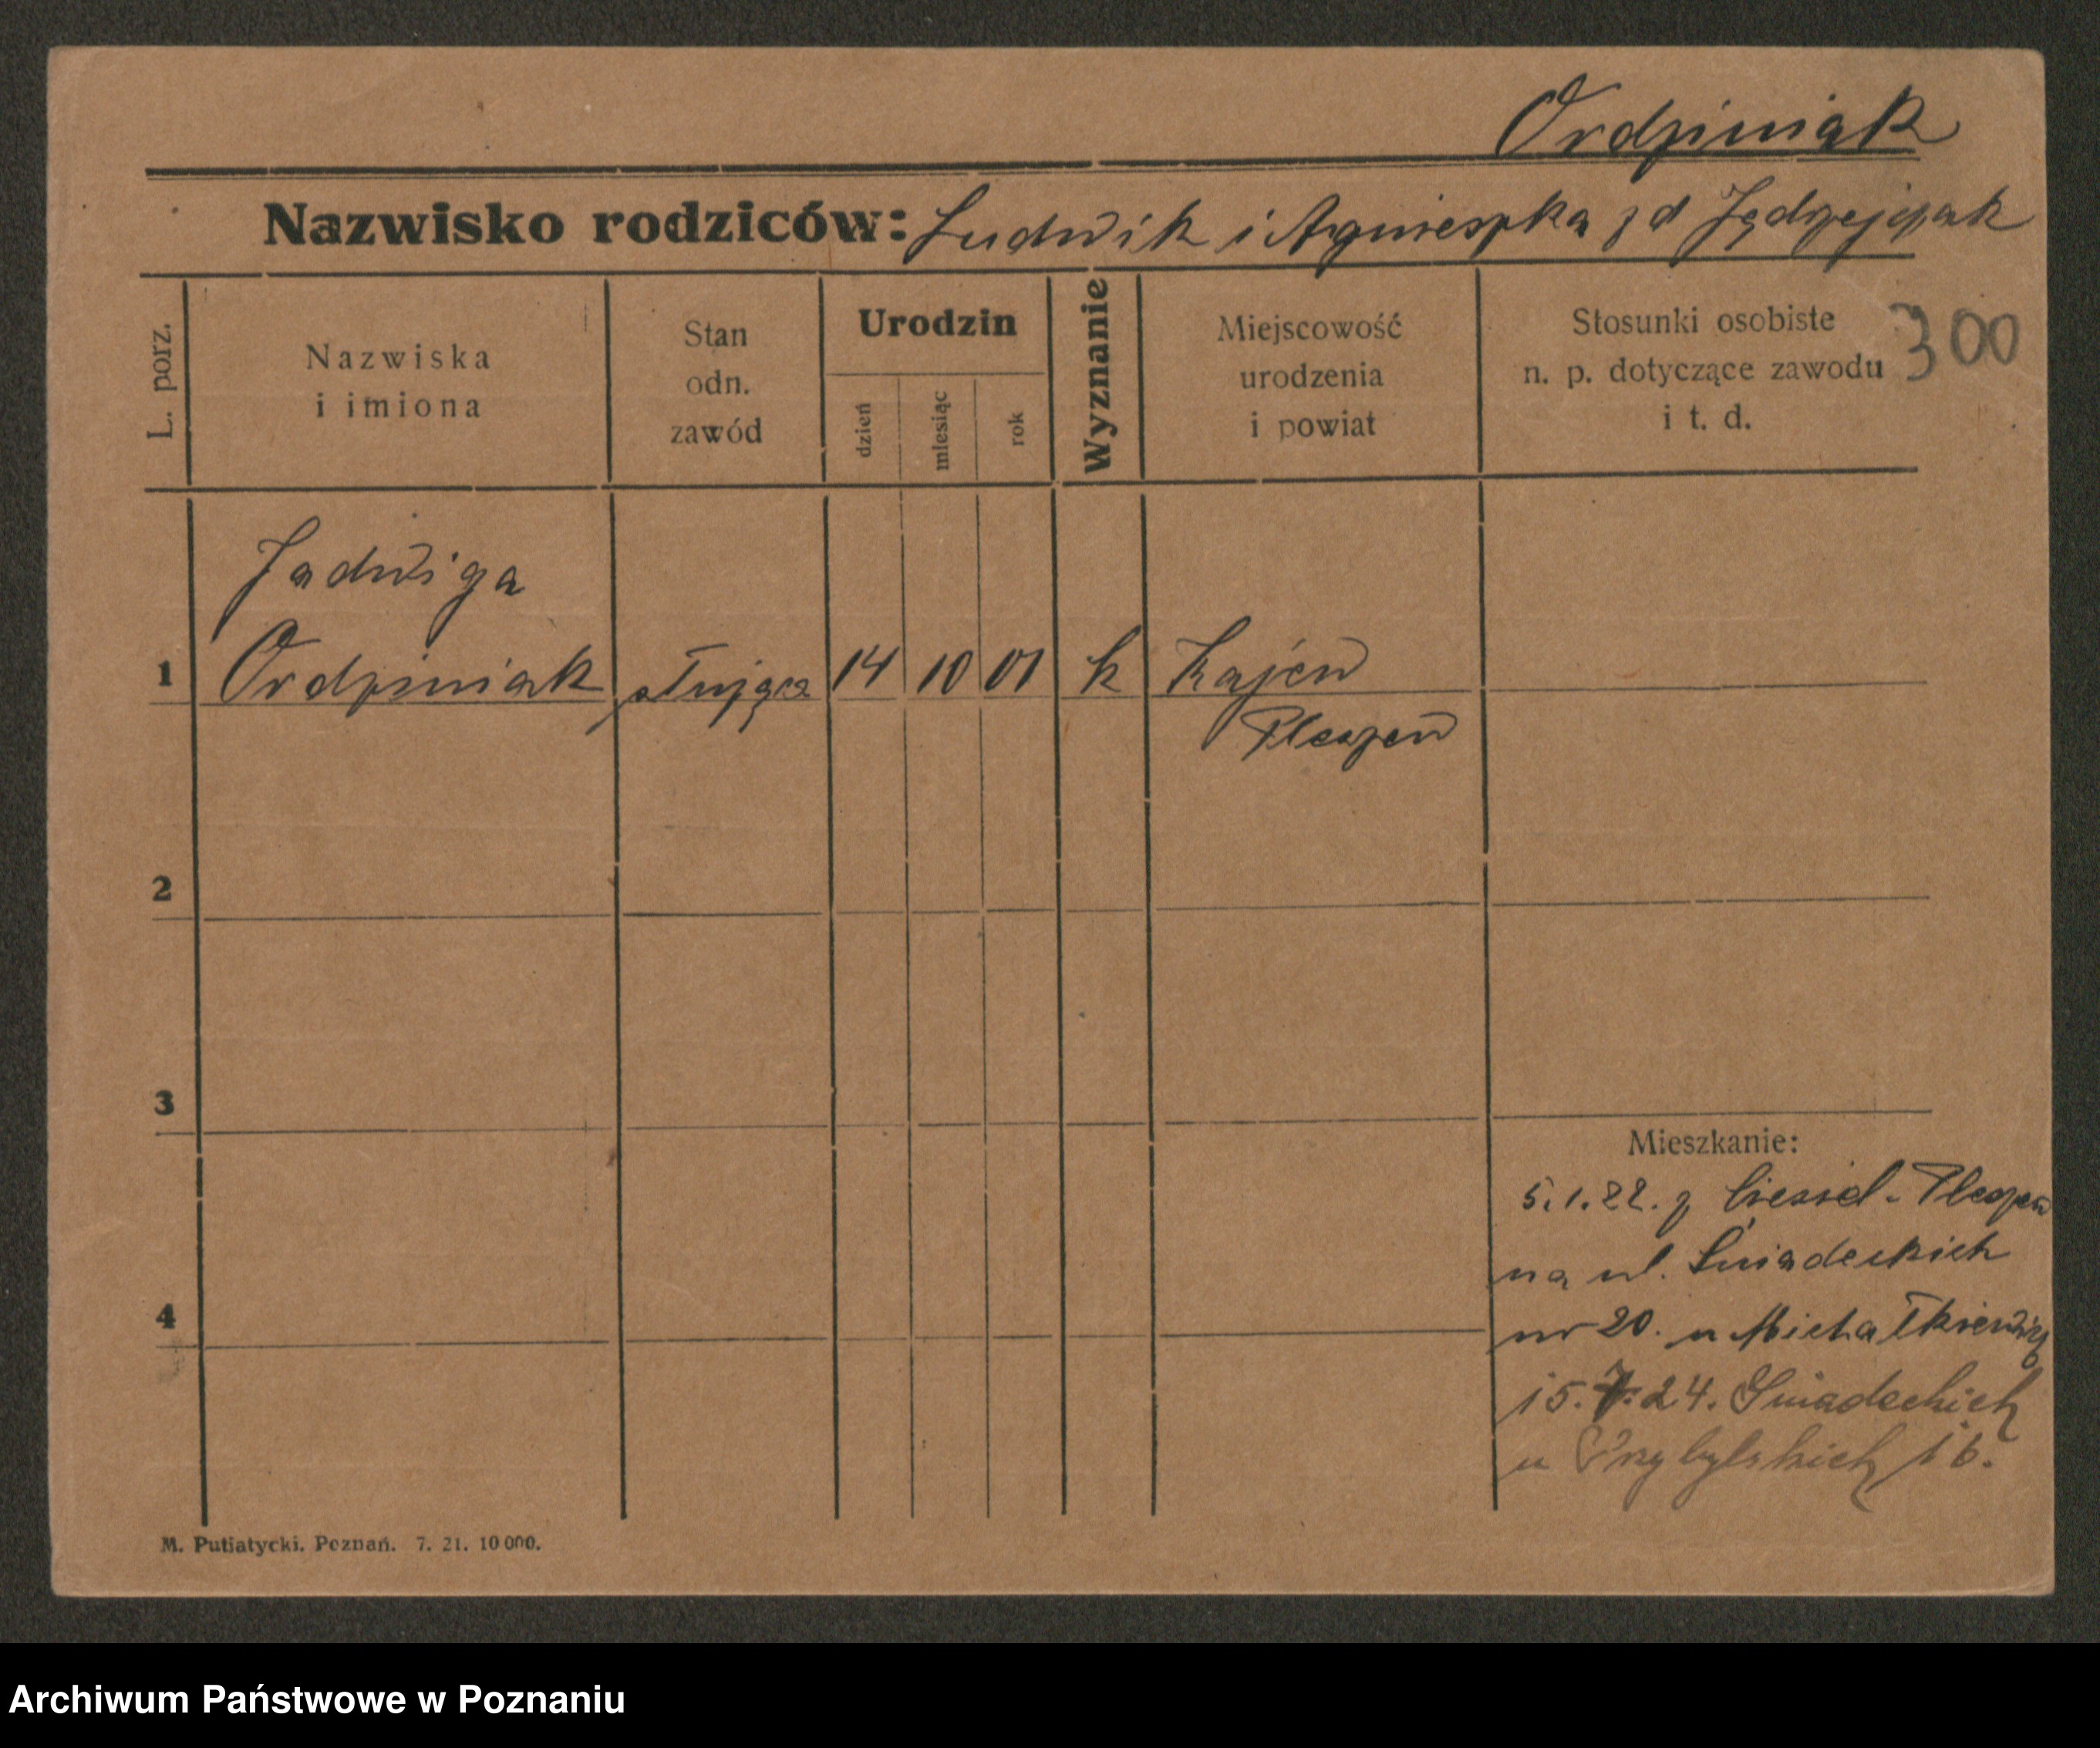 Ordziniak
Nazwisko rodziców: Ludwik i Agnieszka z d Jędrzejczak
L. porz.
Nazwiska
i imiona
Stan
odn.
zawód
Urodzin
dzień
miesiąc
rok
Wyznanie
Miejscowość
urodzenia
i powiat
Stosunki osobiste
n. p. dotyczące zawodu
i t. d.
300
Jadwiga
1 Ordziniak służąca 14 10 01 k Kajew
Pleszew
2
3
4
Mieszkanie:
5.1.22. z Pleszew
na ul. Śniadeckich
nr 20. u Michałkiewicz
15.7.24. Śniadeckich
u Przybylskich 16.
M. Putiatycki. Poznań. 7. 21. 10 000.
Archiwum Państwowe w Poznaniu